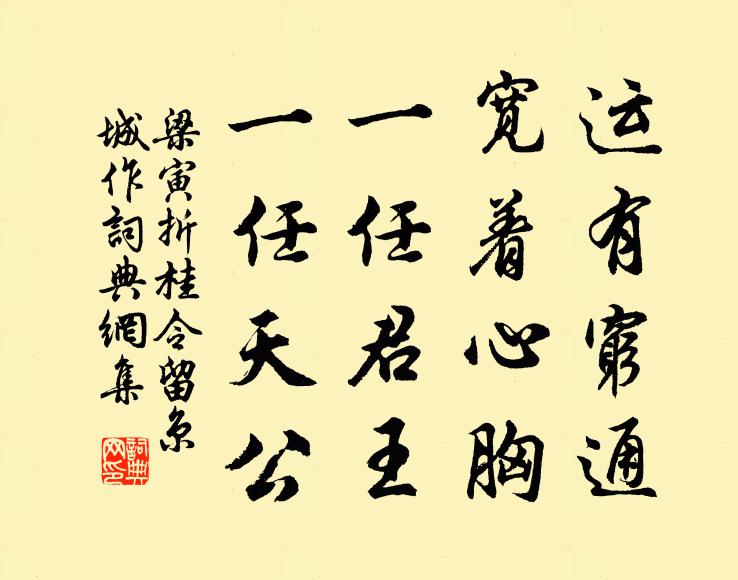 运有穷通
宽着心胸
一任君王
一任天公
梁寅折桂令留京
城作詞典網集
詞典網印